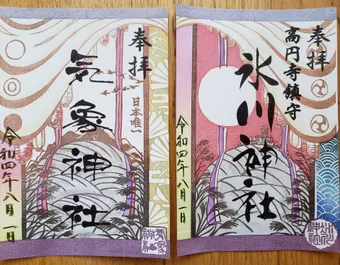 奉拝
高円寺鎮守
氷川神社
令和四年八月一日
奉拝
日本唯一
気象神社
令和四年八月一日